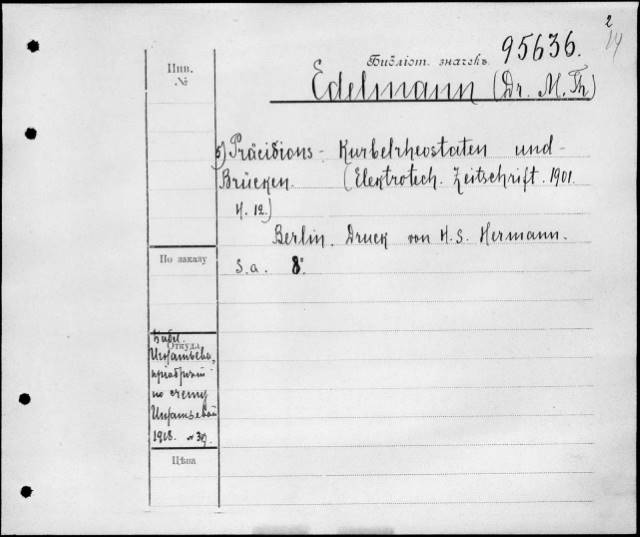 2
14
Инв.
№
Библіот. значекъ
95636.
Edelmann (Dr. M. Th)
5) Präcisions - Kurbelrheostaten und -
Brücken. (Elektrotech. Zeitschrift. 1901.
H. 12.)
Berlin. Druck von H. S. Hermann.
S. a. 8°
По заказу
Откуда
Библ.
Игнатьева,
по счету
Игнатьевой
1918. № 39.
Цѣна